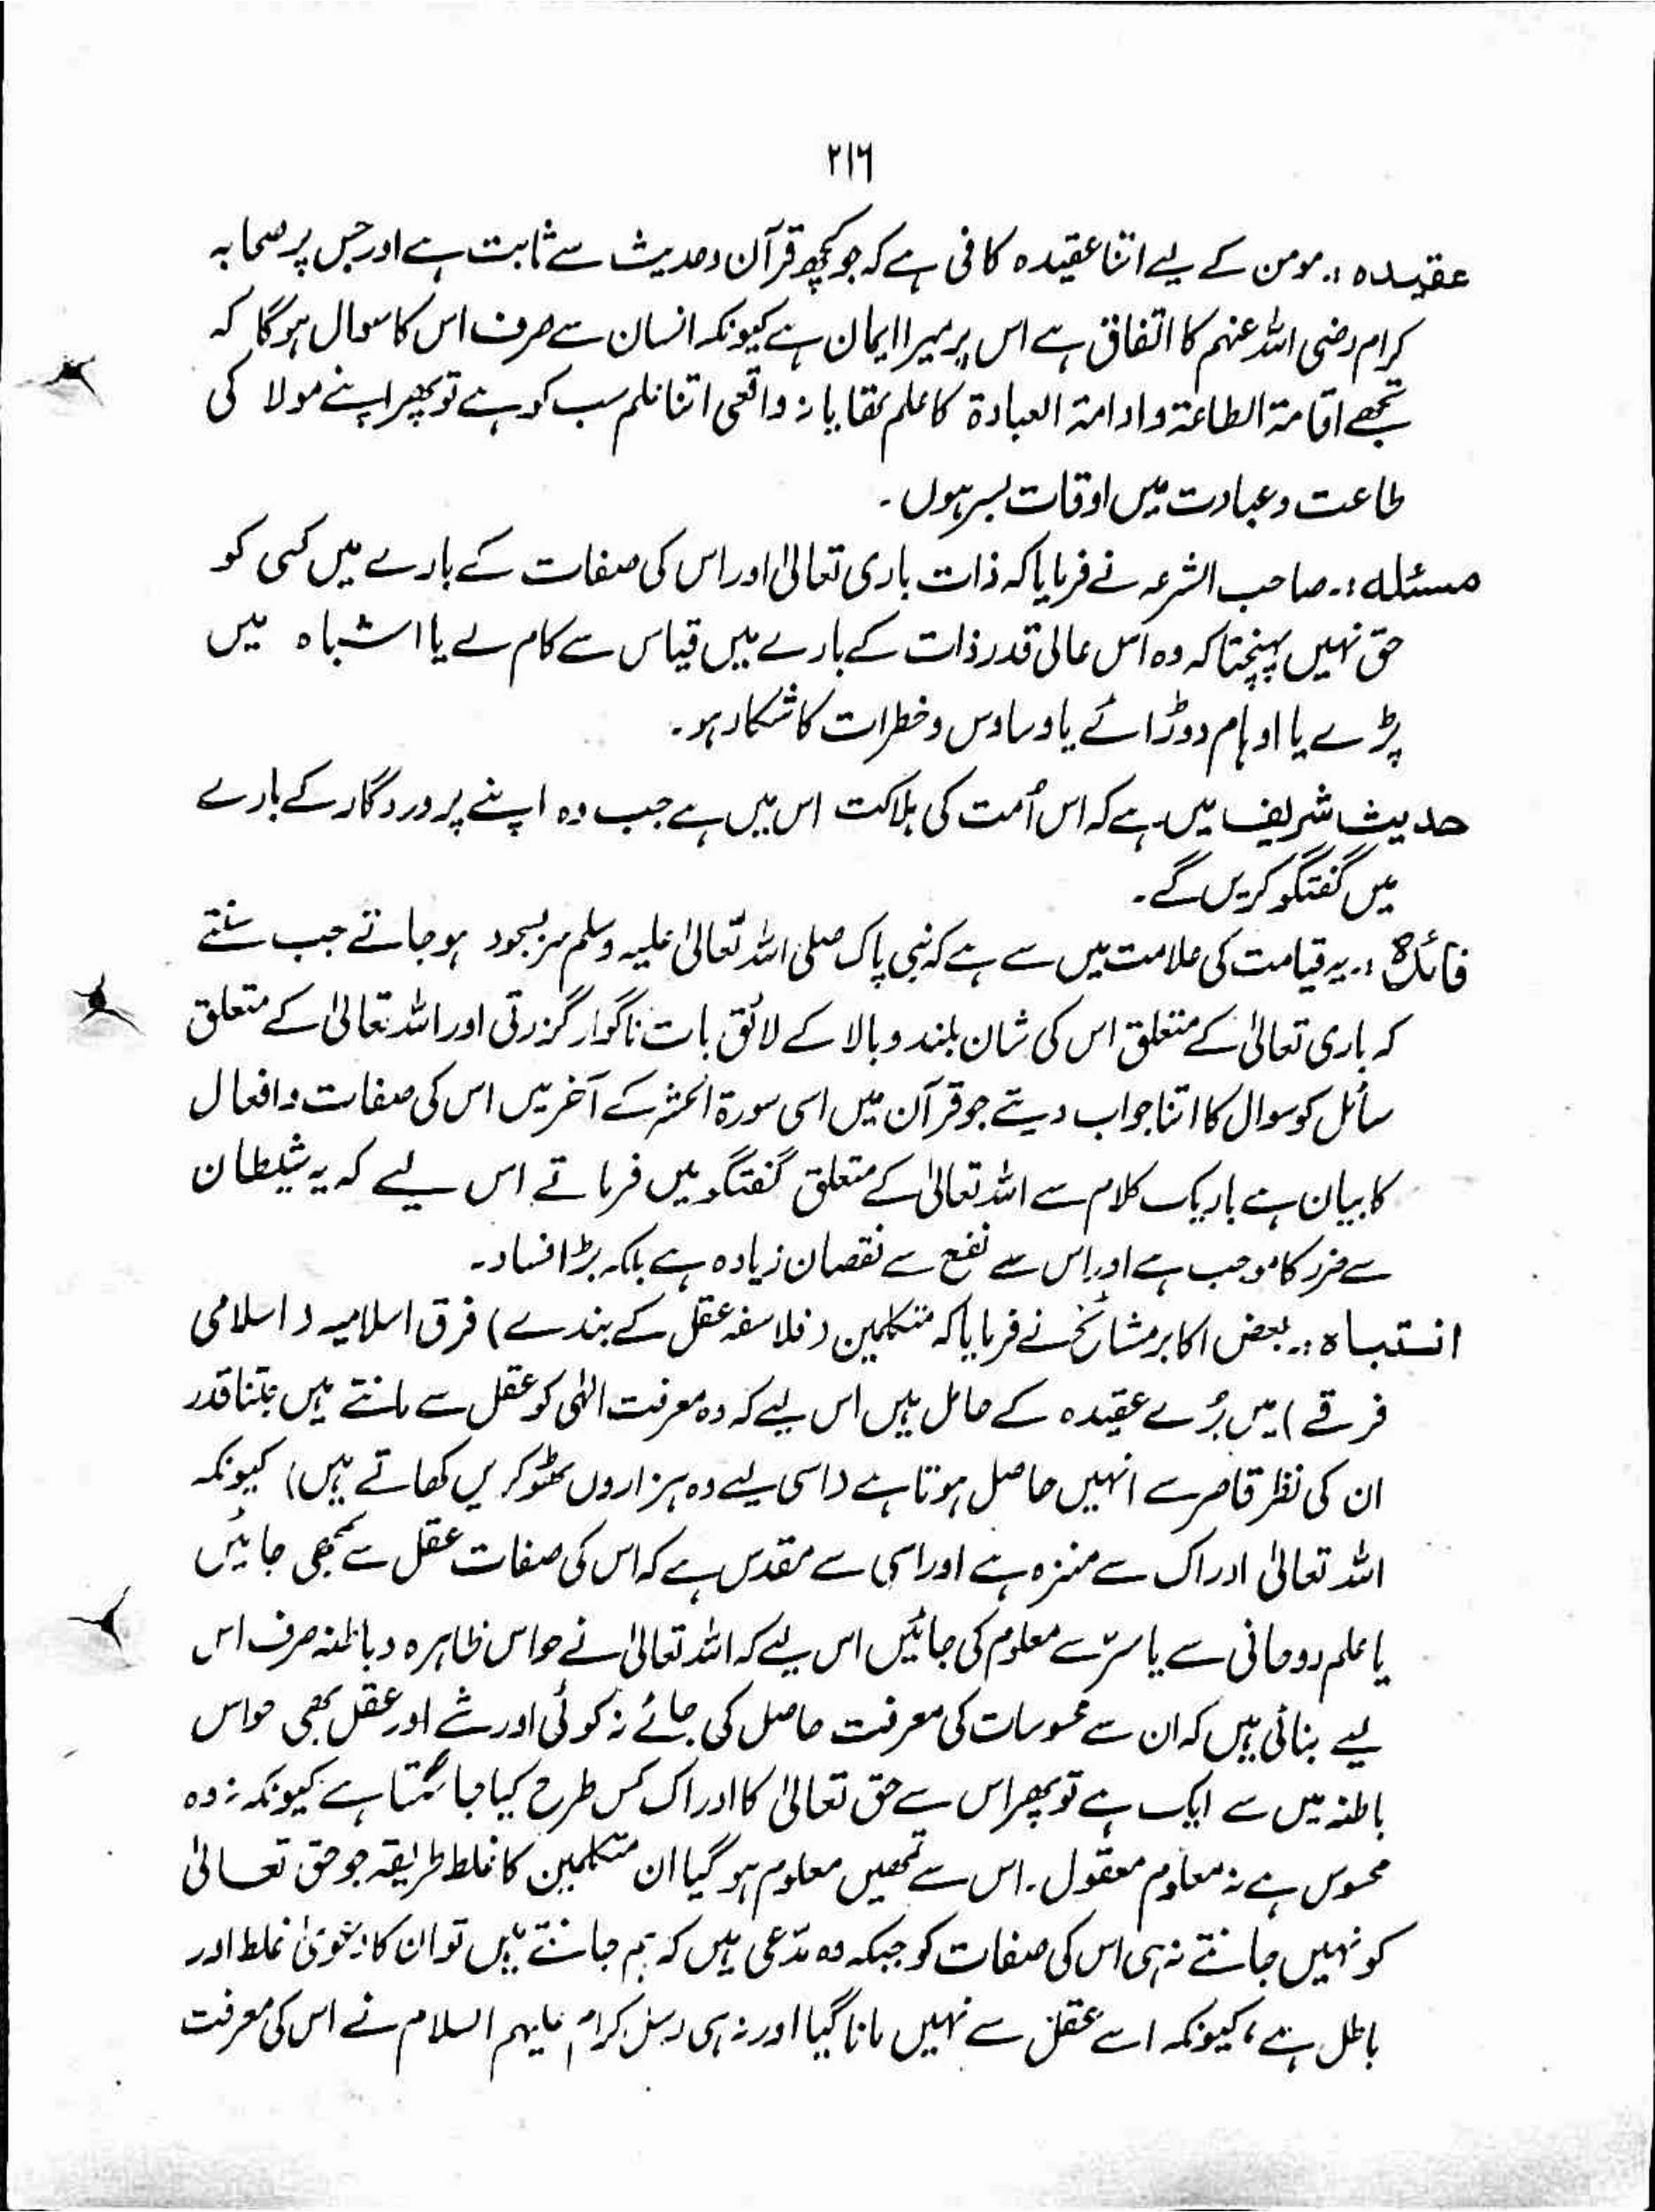 ۲۱۶
عقیدہ :۔ مومن کے لیے اتنا عقیدہ کافی ہے کہ جو کچھ قرآن وحدیث سے ثابت ہے اور جس پر صحابہ
کرام رضی اللہ عنہم کا اتفاق ہے اس پر میرا ایمان ہے کیونکہ انسان سے صرف اس کا سوال ہوگا کہ
تجھے اقامۃ الطاعۃ وادامۃ العبادۃ کا علم تھا یا نہ واقعی اتنا علم سب کو ہے تو پھر اپنے مولا کی
طاعت وعبادت میں اوقات بسر ہوں ۔
مسئلہ :۔ صاحب الشرعہ نے فرمایا کہ ذات باری تعالیٰ اور اس کی صفات کے بارے میں کسی کو
حق نہیں پہنچتا کہ وہ اس عالی قدر ذات کے بارے میں قیاس سے کام لے یا اشباہ میں
پڑے یا اوہام دوڑائے یا وساوس وخطرات کا شکار ہو ۔
حدیث شریف میں ہے کہ اس اُمت کی ہلاکت اس میں ہے جب وہ اپنے پروردگار کے بارے
میں گفتگو کریں گے ۔
فائدہ :۔ یہ قیامت کی علامت میں سے ہے کہ نبی پاک صلی اللہ تعالیٰ علیہ وسلم سر بسجود ہوجاتے جب سنتے
کہ باری تعالیٰ کے متعلق اس کی شان بلند وبالا کے لائق بات ناگوار گزرتی اور اللہ تعالیٰ کے متعلق
سائل کو سوال کا اتنا جواب دیتے جو قرآن میں اسی سورۃ الحشر کے آخر میں اس کی صفات وافعال
کا بیان ہے باریک کلام سے اللہ تعالیٰ کے متعلق گفتگو میں فرماتے اس لیے کہ یہ شیطان
سے ضرر کا موجب ہے اور اس سے نفع سے نقصان زیادہ ہے بلکہ بڑا فساد ۔
انتباہ :۔ بعض اکابر مشائخ نے فرمایا کہ متکلمین (فلاسفہ عقل کے بندے) فرق اسلامیہ (اسلامی
فرقے) میں بُرے عقیدہ کے حامل ہیں اس لیے کہ وہ معرفت الٰہی کو عقل سے مانتے ہیں جتنا قدر
ان کی نظر قاصر سے انہیں حاصل ہوتا ہے (اسی لیے وہ ہزاروں ٹھوکریں کھاتے ہیں) کیونکہ
اللہ تعالیٰ ادراک سے منزہ ہے اور اسی سے مقدس ہے کہ اس کی صفات عقل سے سمجھی جائیں
یا علم روحانی سے یا سرّ سے معلوم کی جائیں اس لیے کہ اللہ تعالیٰ نے حواس ظاہرہ وباطنہ صرف اس
لیے بنائی ہیں کہ ان سے محسوسات کی معرفت حاصل کی جائے نہ کوئی اور شے اور عقل بھی حواس
باطنہ میں سے ایک ہے تو پھر اس سے حق تعالیٰ کا ادراک کس طرح کیا جا سکتا ہے کیونکہ نہ وہ
محسوس ہے نہ معلوم معقول ۔ اس سے تمھیں معلوم ہو گیا ان متکلمین کا غلط طریقہ جو حق تعالیٰ
کو نہیں جانتے نہ ہی اس کی صفات کو جبکہ وہ مدّعی ہیں کہ ہم جانتے ہیں تو ان کا دعویٰ غلط اور
باطل ہے ، کیونکہ اسے عقل سے نہیں مانا گیا اور نہ ہی رسل کرام علیہم السلام نے اس کی معرفت